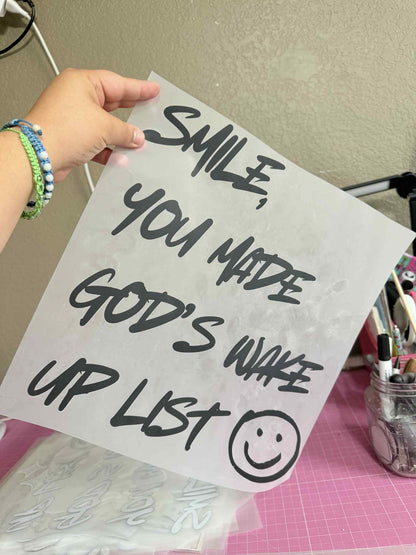 SMILE,
YOU MADE
GOD'S WAKE
UP LIST